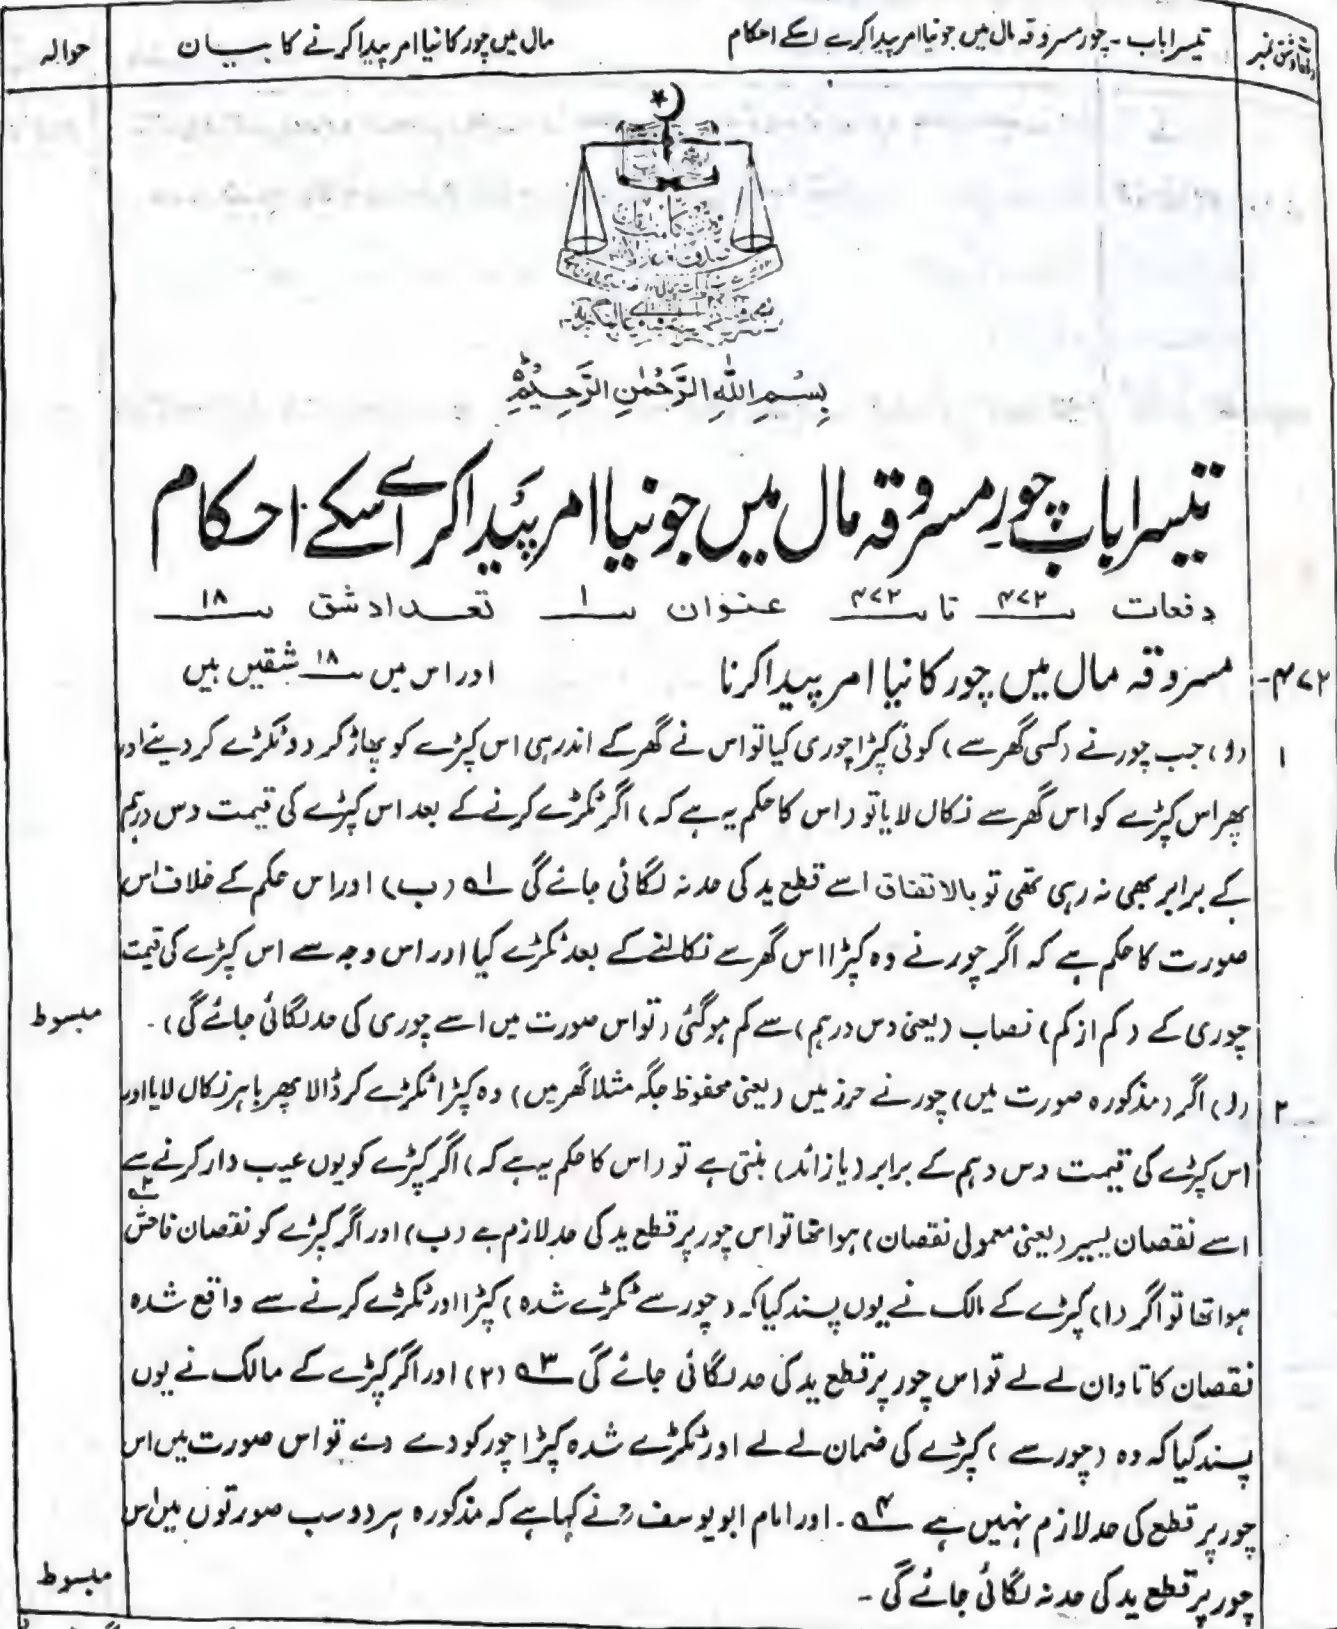 دفعات و شق نمبر
تیسرا باب - چور مسروقہ مال میں جو نیا امر پیدا کرے اسکے احکام
مال میں چور کا نیا امر پیدا کرنے کا بیان
حوالہ
بِسْمِ اللّٰهِ الرَّحْمٰنِ الرَّحِيْمِ
تیسرا باب چور مسروقہ مال میں جو نیا امر پیدا کرے اسکے احکام
دفعات ۴۷۲ تا ۴۷۲ عنوان ۱ تعداد شق ۱۸
۴۷۲- مسروقہ مال میں چور کا نیا امر پیدا کرنا اور اس میں ۱۸ شقیں ہیں
۱ (ا) جب چور نے (کسی گھر سے) کوئی کپڑا چوری کیا تو اس نے گھر کے اندر ہی اس کپڑے کو پھاڑ کر دو ٹکڑے کر دیئے اور
پھر اس کپڑے کو اس گھر سے نکال لایا تو (اس کا حکم یہ ہے کہ) اگر ٹکڑے کرنے کے بعد اس کپڑے کی قیمت دس درہم
کے برابر بھی نہ رہی تھی تو بالاتفاق اسے قطع ید کی حد نہ لگائی جائے گی ۱؎ (ب) اور اس حکم کے خلاف اس
صورت کا حکم ہے کہ اگر چور نے وہ کپڑا اس گھر سے نکالنے کے بعد ٹکڑے کیا اور اس وجہ سے اس کپڑے کی قیمت
چوری کے (کم از کم) نصاب (یعنی دس درہم) سے کم ہوگئی (تو اس صورت میں اسے چوری کی حد لگائی جائے گی)۔
مبسوط
۲ (ا) اگر (مذکورہ صورت میں) چور نے حرز میں (یعنی محفوظ جگہ مثلا گھر میں) وہ کپڑا ٹکڑے کر ڈالا پھر باہر نکال لایا اور
اس کپڑے کی قیمت دس دہم کے برابر (یا زائد) بنتی ہے تو (اس کا حکم یہ ہے کہ) اگر کپڑے کو یوں عیب دار کرنے سے
اسے نقصان یسیر (یعنی معمولی نقصان) ہوا تھا تو اس چور پر قطع ید کی حد لازم ہے (ب) اور اگر کپڑے کو نقصان فاحش ۲؎
ہوا تھا تو اگر (۱) کپڑے کے مالک نے یوں پسند کیا کہ (چور سے ٹکڑے شدہ) کپڑا اور ٹکڑے کرنے سے واقع شدہ
نقصان کا تاوان لے لے تو اس چور پر قطع ید کی حد لگائی جائے گی ۳؎ (۲) اور اگر کپڑے کے مالک نے یوں
پسند کیا کہ وہ (چور سے) کپڑے کی ضمان لے لے اور ٹکڑے شدہ کپڑا چور کو دے دے تو اس صورت میں اس
چور پر قطع کی حد لازم نہیں ہے ۴؎۔ اور امام ابو یوسف رح نے کہا ہے کہ مذکورہ ہر دو سب صورتوں میں اس
چور پر قطع ید کی حد نہ لگائی جائے گی ۔
مبسوط